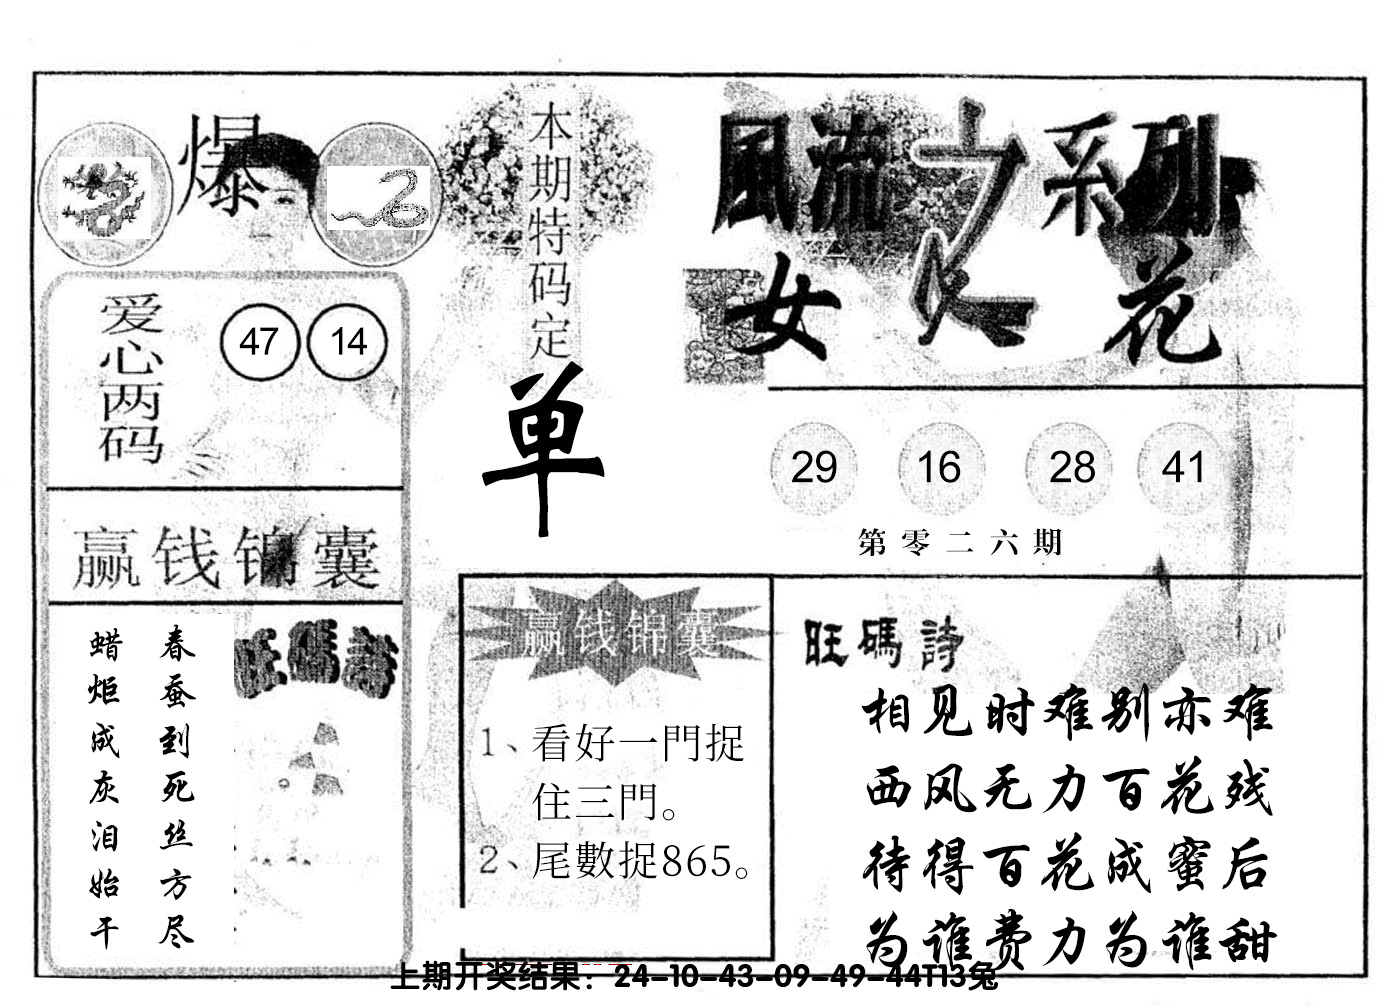 爆
爱心两码
47 14
赢钱锦囊
春蚕到死丝方尽
蜡炬成灰泪始干
旺碼詩
本期特码定
单
風流之系列
女人花
29 16 28 41
第零二六期
赢钱锦囊
1、看好一門捉
住三門。
2、尾數捉865。
旺碼詩
相见时难别亦难
西风无力百花残
待得百花成蜜后
为谁费力为谁甜
上期开奖结果：24-10-43-09-49-44T13兔